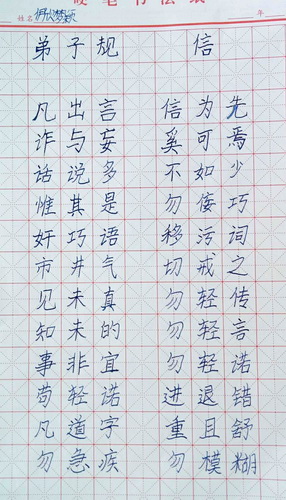 姓名
年
弟子规 信
凡出言 信为先
诈与妄 奚可焉
话说多 不如少
惟其是 勿佞巧
奸巧语 移污词
市井气 切戒之
见未真 勿轻传
知未的 勿轻言
事非宜 勿轻诺
苟轻诺 进退错
凡道字 重且舒
勿急疾 勿模糊